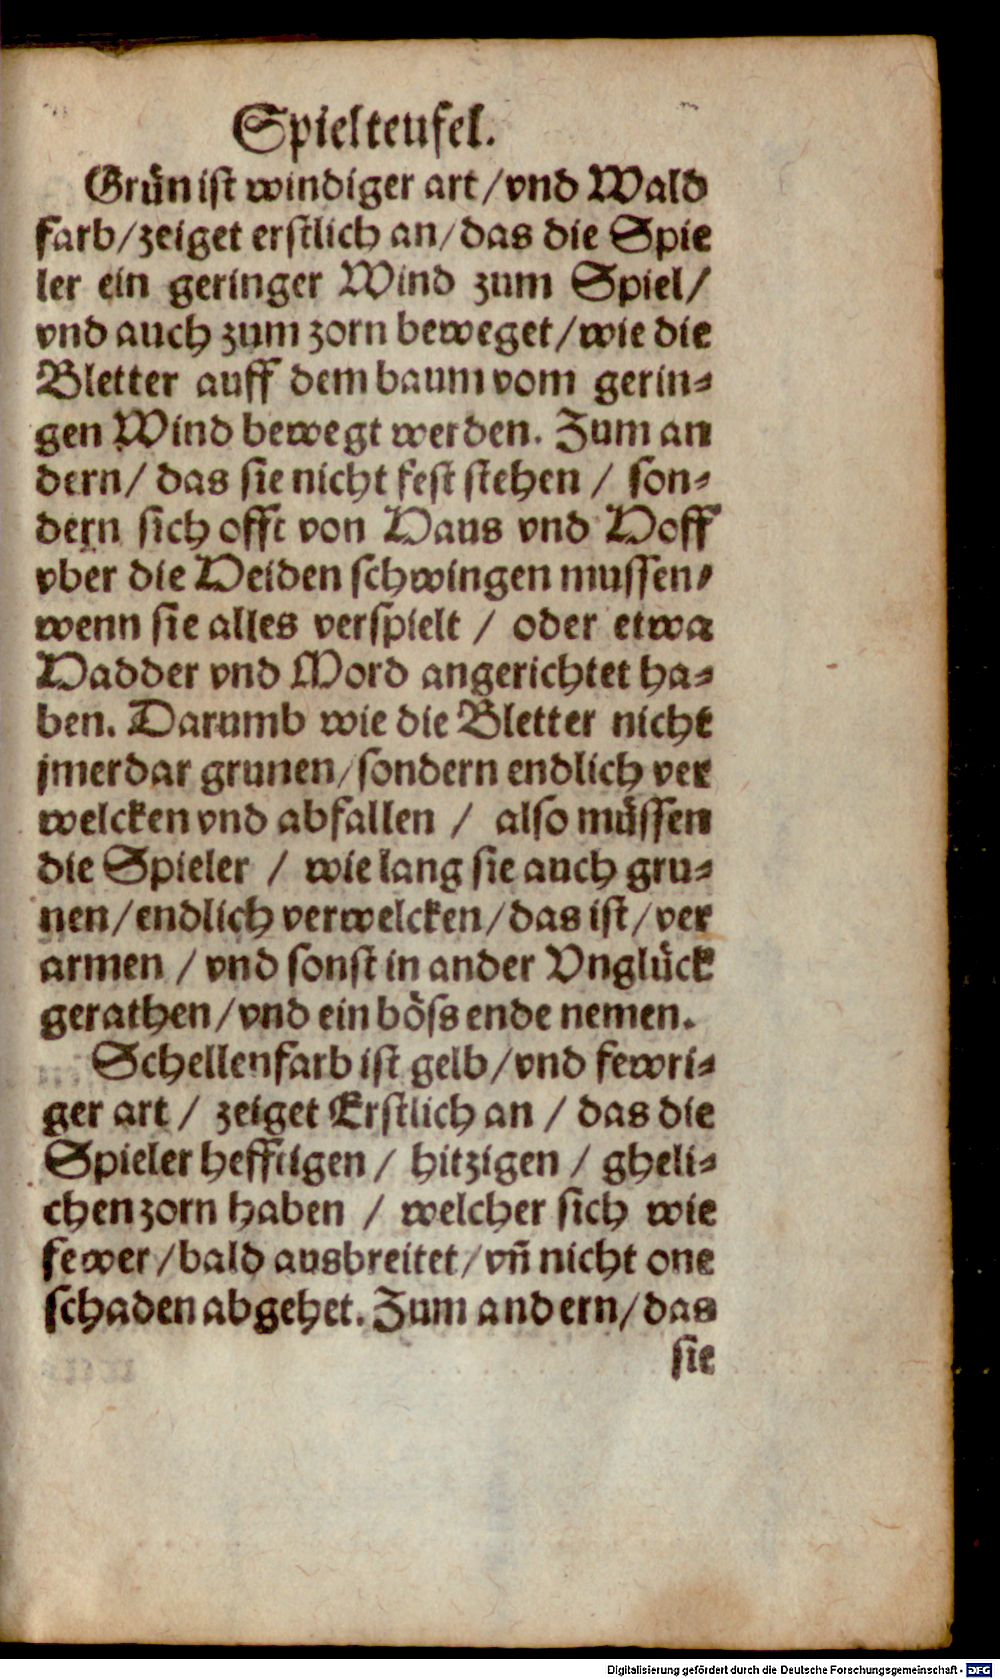 Spielteufel.
Grün ist windiger art/vnd Wald
farb/zeiget erstlich an/das die Spie
ler ein geringer Wind zum Spiel/
vnd auch zum zorn beweget/wie die
Bletter auff dem baum vom gerin⸗
gen Wind bewegt werden. Zum an
dern/ das sie nicht fest stehen / son⸗
dern sich offt von Haus vnd Hoff
vber die Heiden schwingen mussen/
wenn sie alles verspielt / oder etwa
Hadder vnd Mord angerichtet ha⸗
ben. Darumb wie die Bletter nicht
jmerdar grunen/sondern endlich ver
welcken vnd abfallen / also müssen
die Spieler / wie lang sie auch gru⸗
nen/endlich verwelcken/das ist/ver
armen / vnd sonst in ander Vnglück
gerathen/vnd ein böss ende nemen.
Schellenfarb ist gelb/vnd fewri⸗
ger art / zeiget Erstlich an / das die
Spieler hefftigen / hitzigen / gheli⸗
chen zorn haben / welcher sich wie
fewer/bald ausbreitet/vñ nicht one
schaden abgehet. Zum andern/das
sie
Digitalisierung gefördert durch die Deutsche Forschungsgemeinschaft - DFG